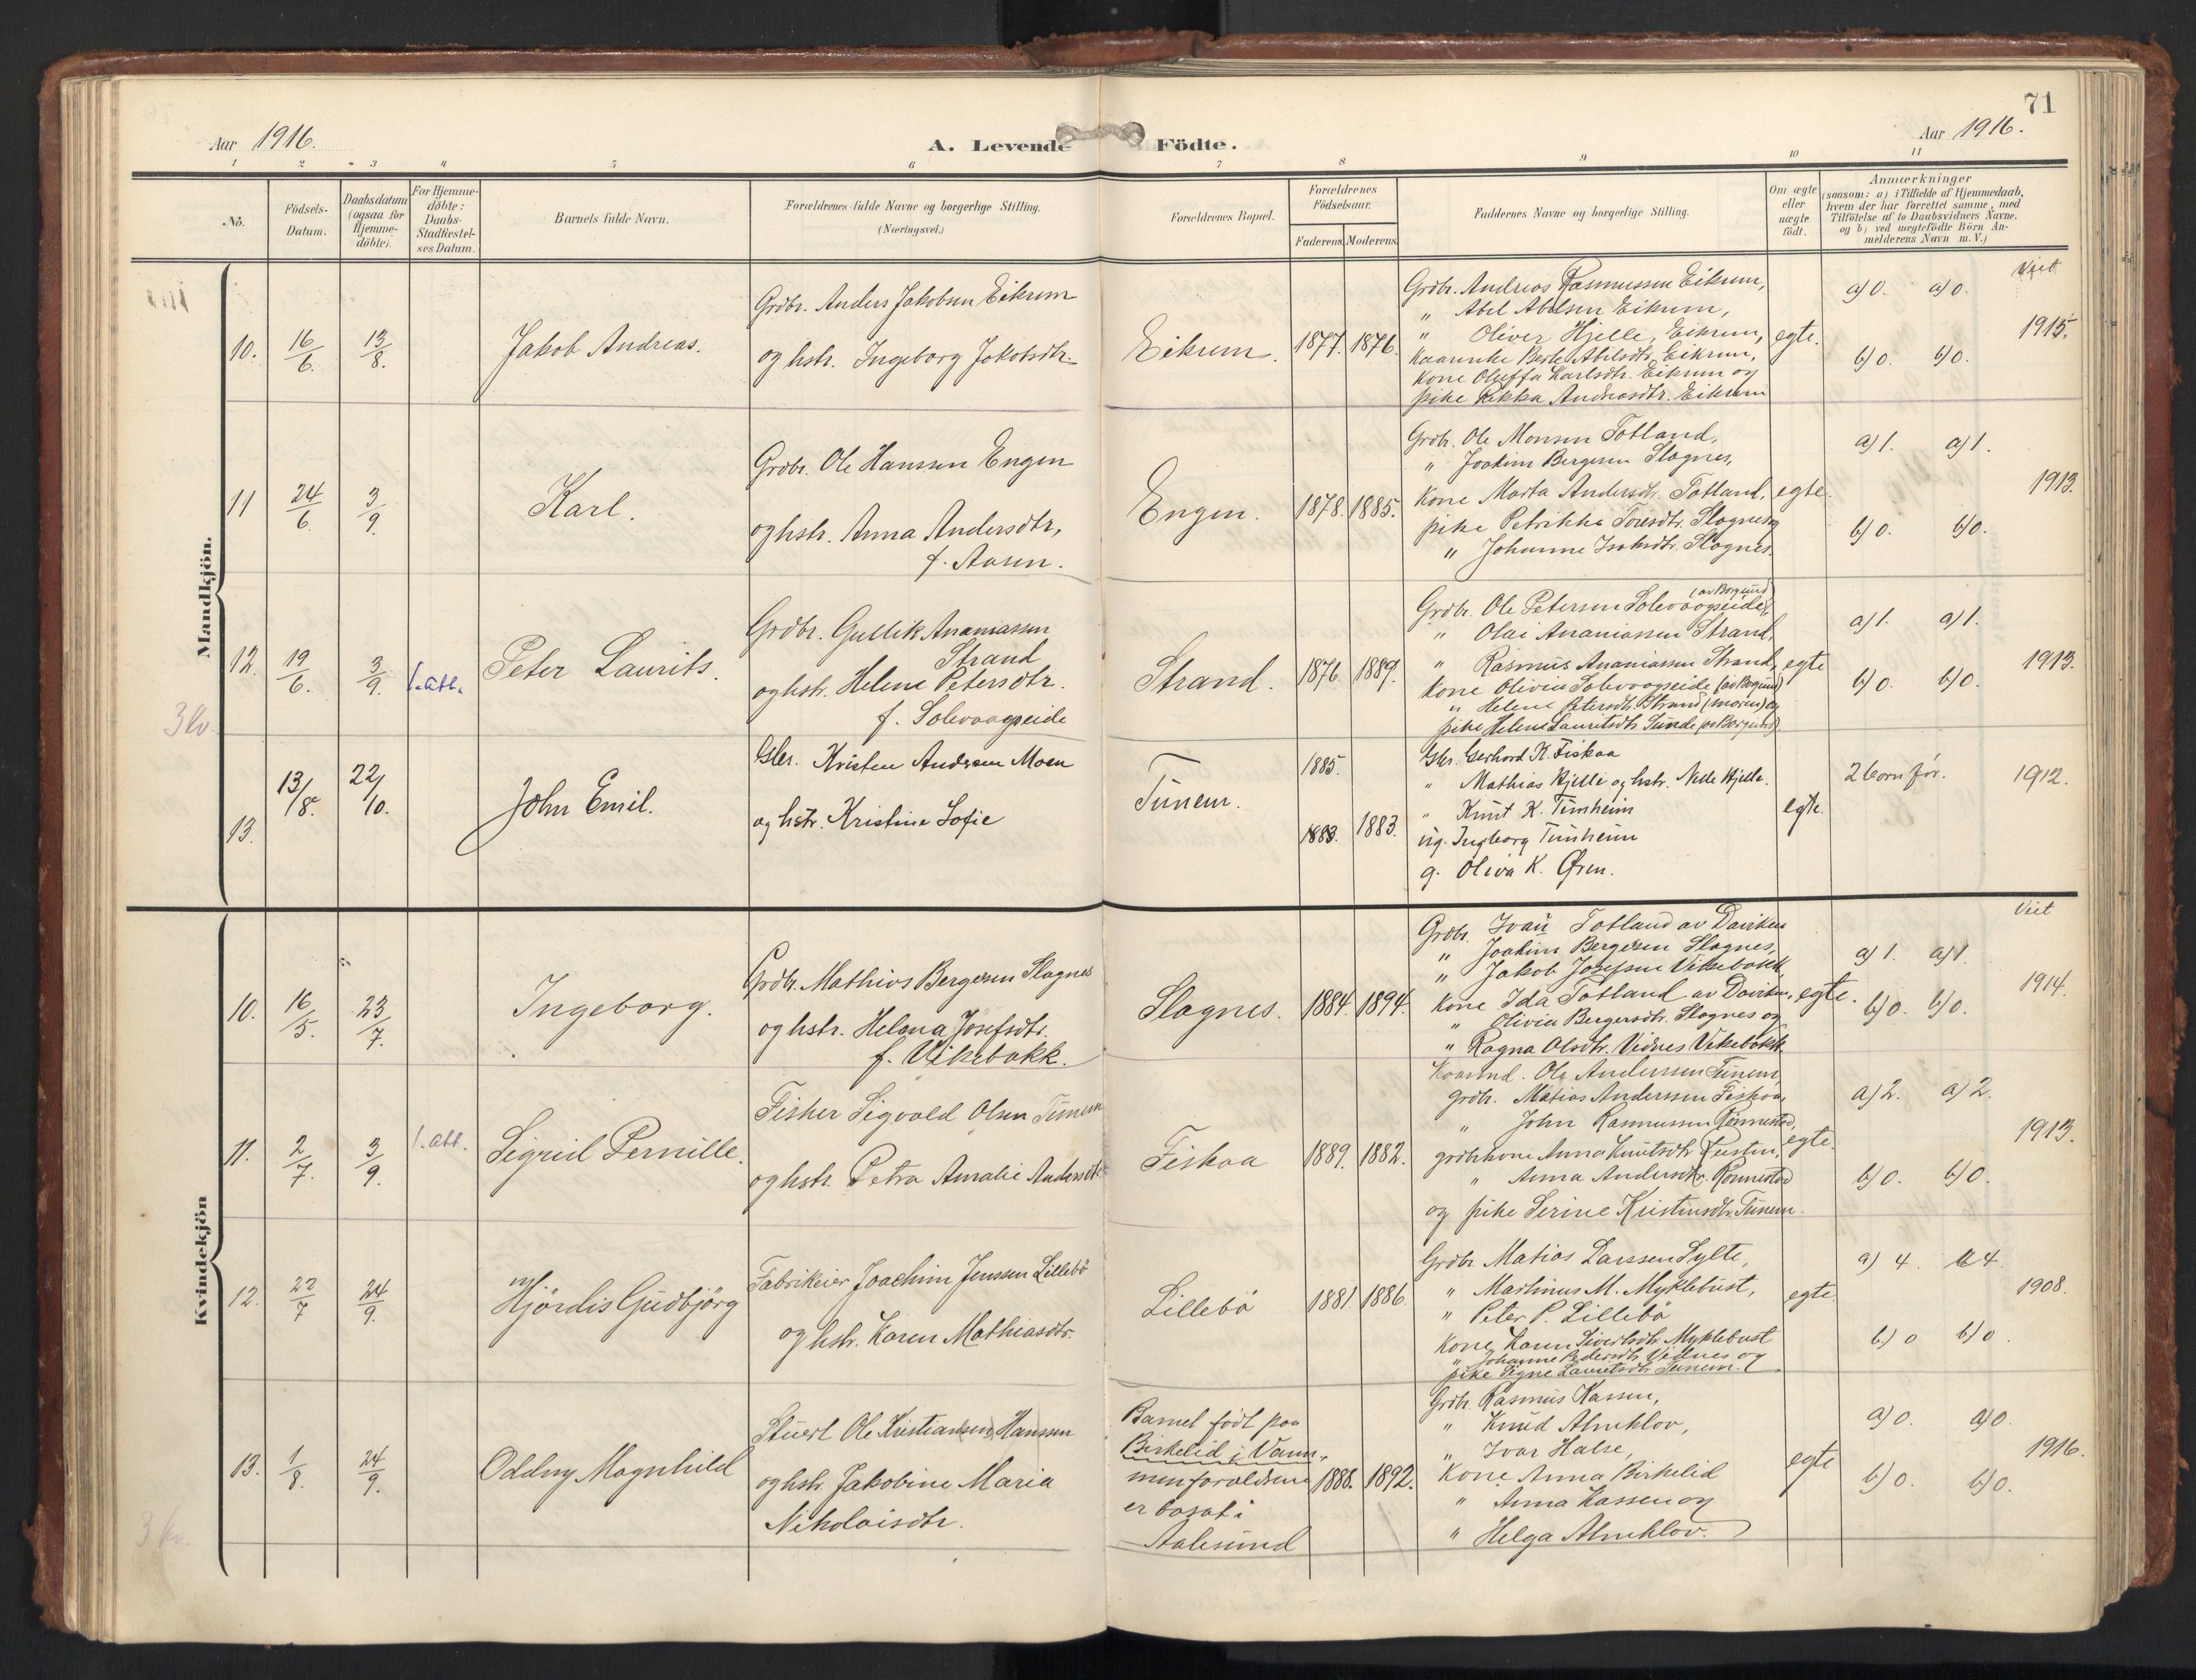 71
Aar 1916.
A. Levende Födte.
Aar 1916.
1 2 3 4 5 6 7 8 9 10 11
No.
Födsels-
Datum.
Daabsdatum
(ogsaa for
Hjemme-
döbte).
For Hjemme-
döbte:
Daabs-
Stadfæstel-
ses Datum.
Barnets fulde Navn.
Forældrenes fulde Navne og borgerlige Stilling.
(Næringsvei.)
Forældrenes Bopæl.
Forældrenes
Födselsaar.
Faderens. Moderens.
Faddernes Navne og borgerlige Stilling.
Om ægte
eller
uægte
födt.
Anmærkninger
(saasom: a) i Tilfælde af Hjemmedaab,
hvem der har forrettet samme, med
Tilföielse af to Daabsvidners Navne.
og b) ved uægtefödte Börn An-
melderens Navn m. V.)
Mandkjön.
10.
16/6.
13/8.
Jakob Andreas.
Grdbr. Anders Jakobsen Eikrem
og hstr. Ingeborg Jakobsdtr.
Eikrem.
1877. 1876.
Grdbr. Andreas Rasmussen Eikrem,
" Abel Abelsen Eikrem,
" Oliver Hjelle, Eikrem,
Kaarenke Berte Abelsdtr. Eikrem,
Kone Oluffa Karlsdtr. Eikrem og
pike Rikka Andreasdtr. Eikrem
egte.
a) 0. a) 0.
b) 0. b) 0.
Viet
1915.
11
24/6.
3/9.
Karl.
Grdbr. Ole Hanssen Engen
og hstr. Anna Andersdtr,
f. Aasen.
Engen.
1878. 1885.
Grdbr. Ole Monsen Totland,
" Joakim Bergesen Slagnes,
Kone Marta Andersdtr. Totland,
pike Petrikke Toresdtr. Slagnes og
" Johanne Isaksdtr. Slagnes.
egte.
a) 1. a) 1.
b) 0. b) 0.
1913.
12.
19/6.
3/9.
1. att.
Peter Laurits.
Grdbr. Gullik Ananiassen
Strand
og hstr. Helene Petersdtr.
f. Solevaagseide
Strand.
1876. 1889.
(av Borgund)
Grdbr. Ole Petersen Solevaagseide,
" Olai Ananiassen Strand,
" Rasmus Ananiassen Strand,
Kone Olivia Solevaagseide (av Borgund)
" Helene Petersdtr. Strand (moren) og
pike Helene Lauritsdtr. Sunde (av Borgund).
egte
a) 1. a) 1.
b) 0. b) 0.
1913.
3 kv.
13.
13/8.
22/10.
John Emil.
Gbr. Kristen Andersen Moen
og hstr. Kristine Sofie
Tunem.
1885.
1883. 1883.
Gbr. Gerhard K. Fiskaa
" Mathias Hjelle og hstr. Nelle Hjelle.
" Knut K. Tunheim
ug. Ingeborg Tunheim
g. Oliva K. Øren.
egte.
2 born før.
1912.
Kvindekjön
10.
16/5.
23/7.
Ingeborg.
Grdbr. Mathias Bergesen Slagnes
og hstr. Helena Josefsdtr.
f. Vikebakk.
Slagnes.
1884. 1894.
Grdbr. Ivan Totland av Daviken
" Joakim Bergesen Slagnes,
" Jakob Josefsen Vikebakk
Kone Ida Totland av Daviken,
" Olivia Bergersdtr. Slagnes og
" Ragna Olsdtr. Vidnes Vikebakk.
egte.
a) 1. a) 1.
b) 0. b) 0.
Viet
1914.
11.
2/7.
3/9.
1. att.
Sigrid Pernille.
Fisker Sigvald Olsen Tunem
og hstr. Petra Amalie Andersdtr.
Fiskaa
1889. 1882.
Kaarmd. Ole Anderssen Tunem,
grdbr. Matias Anderssen Fiskaa,
" John Rasmussen Rönnestad,
grdbrkone Anna Knutsdtr.
" Anna Andersdtr. Rönnestad
og pike Serine Kristensdtr. Tunem.
egte.
a) 2. a) 2.
b) 0. b) 0.
1913.
12.
22/7
24/9.
Hjördis Gudbjörg
Fabrikeier Joachim Jenssen Lillebö
og hstr. Karen Mathiasdtr.
Lillebö
1881. 1886.
Grdbr Matias Larssen Sylte,
" Martinus M. Myklebust,
" Peter P. Lillebö
Kone Karen Sivertsdtr. Myklebust
" Johanne Pedersdtr. Vidnes og
pike Signe Lauritsdtr. Tunem.
egte.
a) 4. a 4.
b) 0 b) 0.
1908.
13.
1/8.
24/9.
Oddny Magnhild
Stuert Ole Kristiansen Hanssen
og hstr. Jakobine Maria
Nikolaisdtr.
Barnet födt paa
Birkelid i Vann.,
men foreldrene
er bosat i
Aalesund
1888. 1892.
Grdbr. Rasmus Kassen,
" Knud Almklov,
" Ivar Halse,
Kone Anna Birkelid
" Anna Kassen og
" Helga Almklov.
egte
a) 0. a) 0.
b) 0. b) 0.
1916.
3 kv.